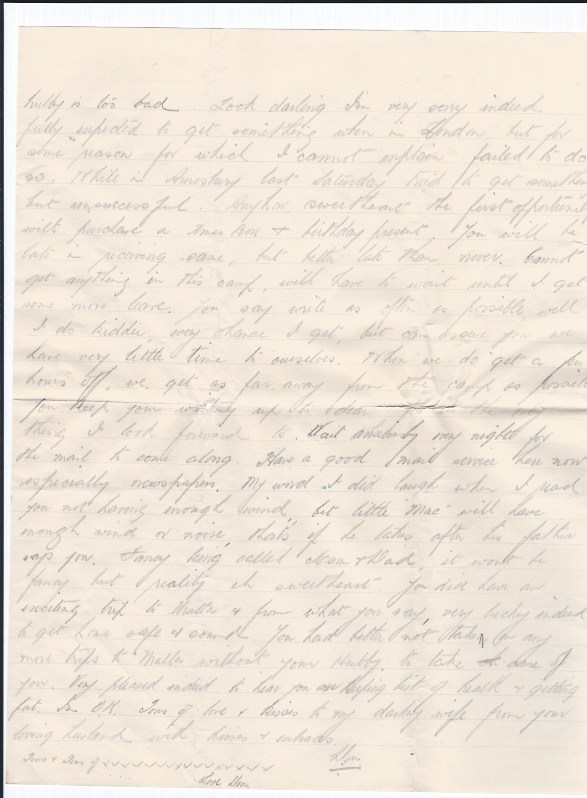 hubby is too bad. Look darling I'm very sorry indeed
fully expected to get something when in London but for
some reason for which I cannot explain failed to do
so. While in Amesbury last Saturday tried to get something
but unsuccessful. Anyhow sweetheart the first opportunity
will purchase a Xmas box & birthday present. You will be
late in receiving same, but better late than never. Cannot
get anything in this camp, will have to wait until I get
some more leave. You say write as often as possible, well
I do kiddie, every chance I get, but can assure you we
have very little time to ourselves. When we do get a few
hours off, we get as far away from the camp as possible
you keep your writing up to dear the only
thing I look forward to. Wait anxiously every night for
the mail to come along. Have a good mail service here now
especially newspapers. My word I did laugh when I read
you not having enough wind, but little "Mac" will have
enough wind or noise, that's if he takes after his father
says you. Fancy being called Mum & Dad, it wont be
fancy but reality eh sweetheart. You did have an
exciting trip to & from what you say, very lucky indeed
to get home safe & sound. You had better not take on any
more trips to without your Hubby to take care of
you. Very pleased indeed to hear you are keeping best of health & getting
fat. I'm OK. Tons of love & kisses to my darling wife from your
loving husband with & embraces.
Tons & Tons of x x x x x x x x x x x x x x x
Love